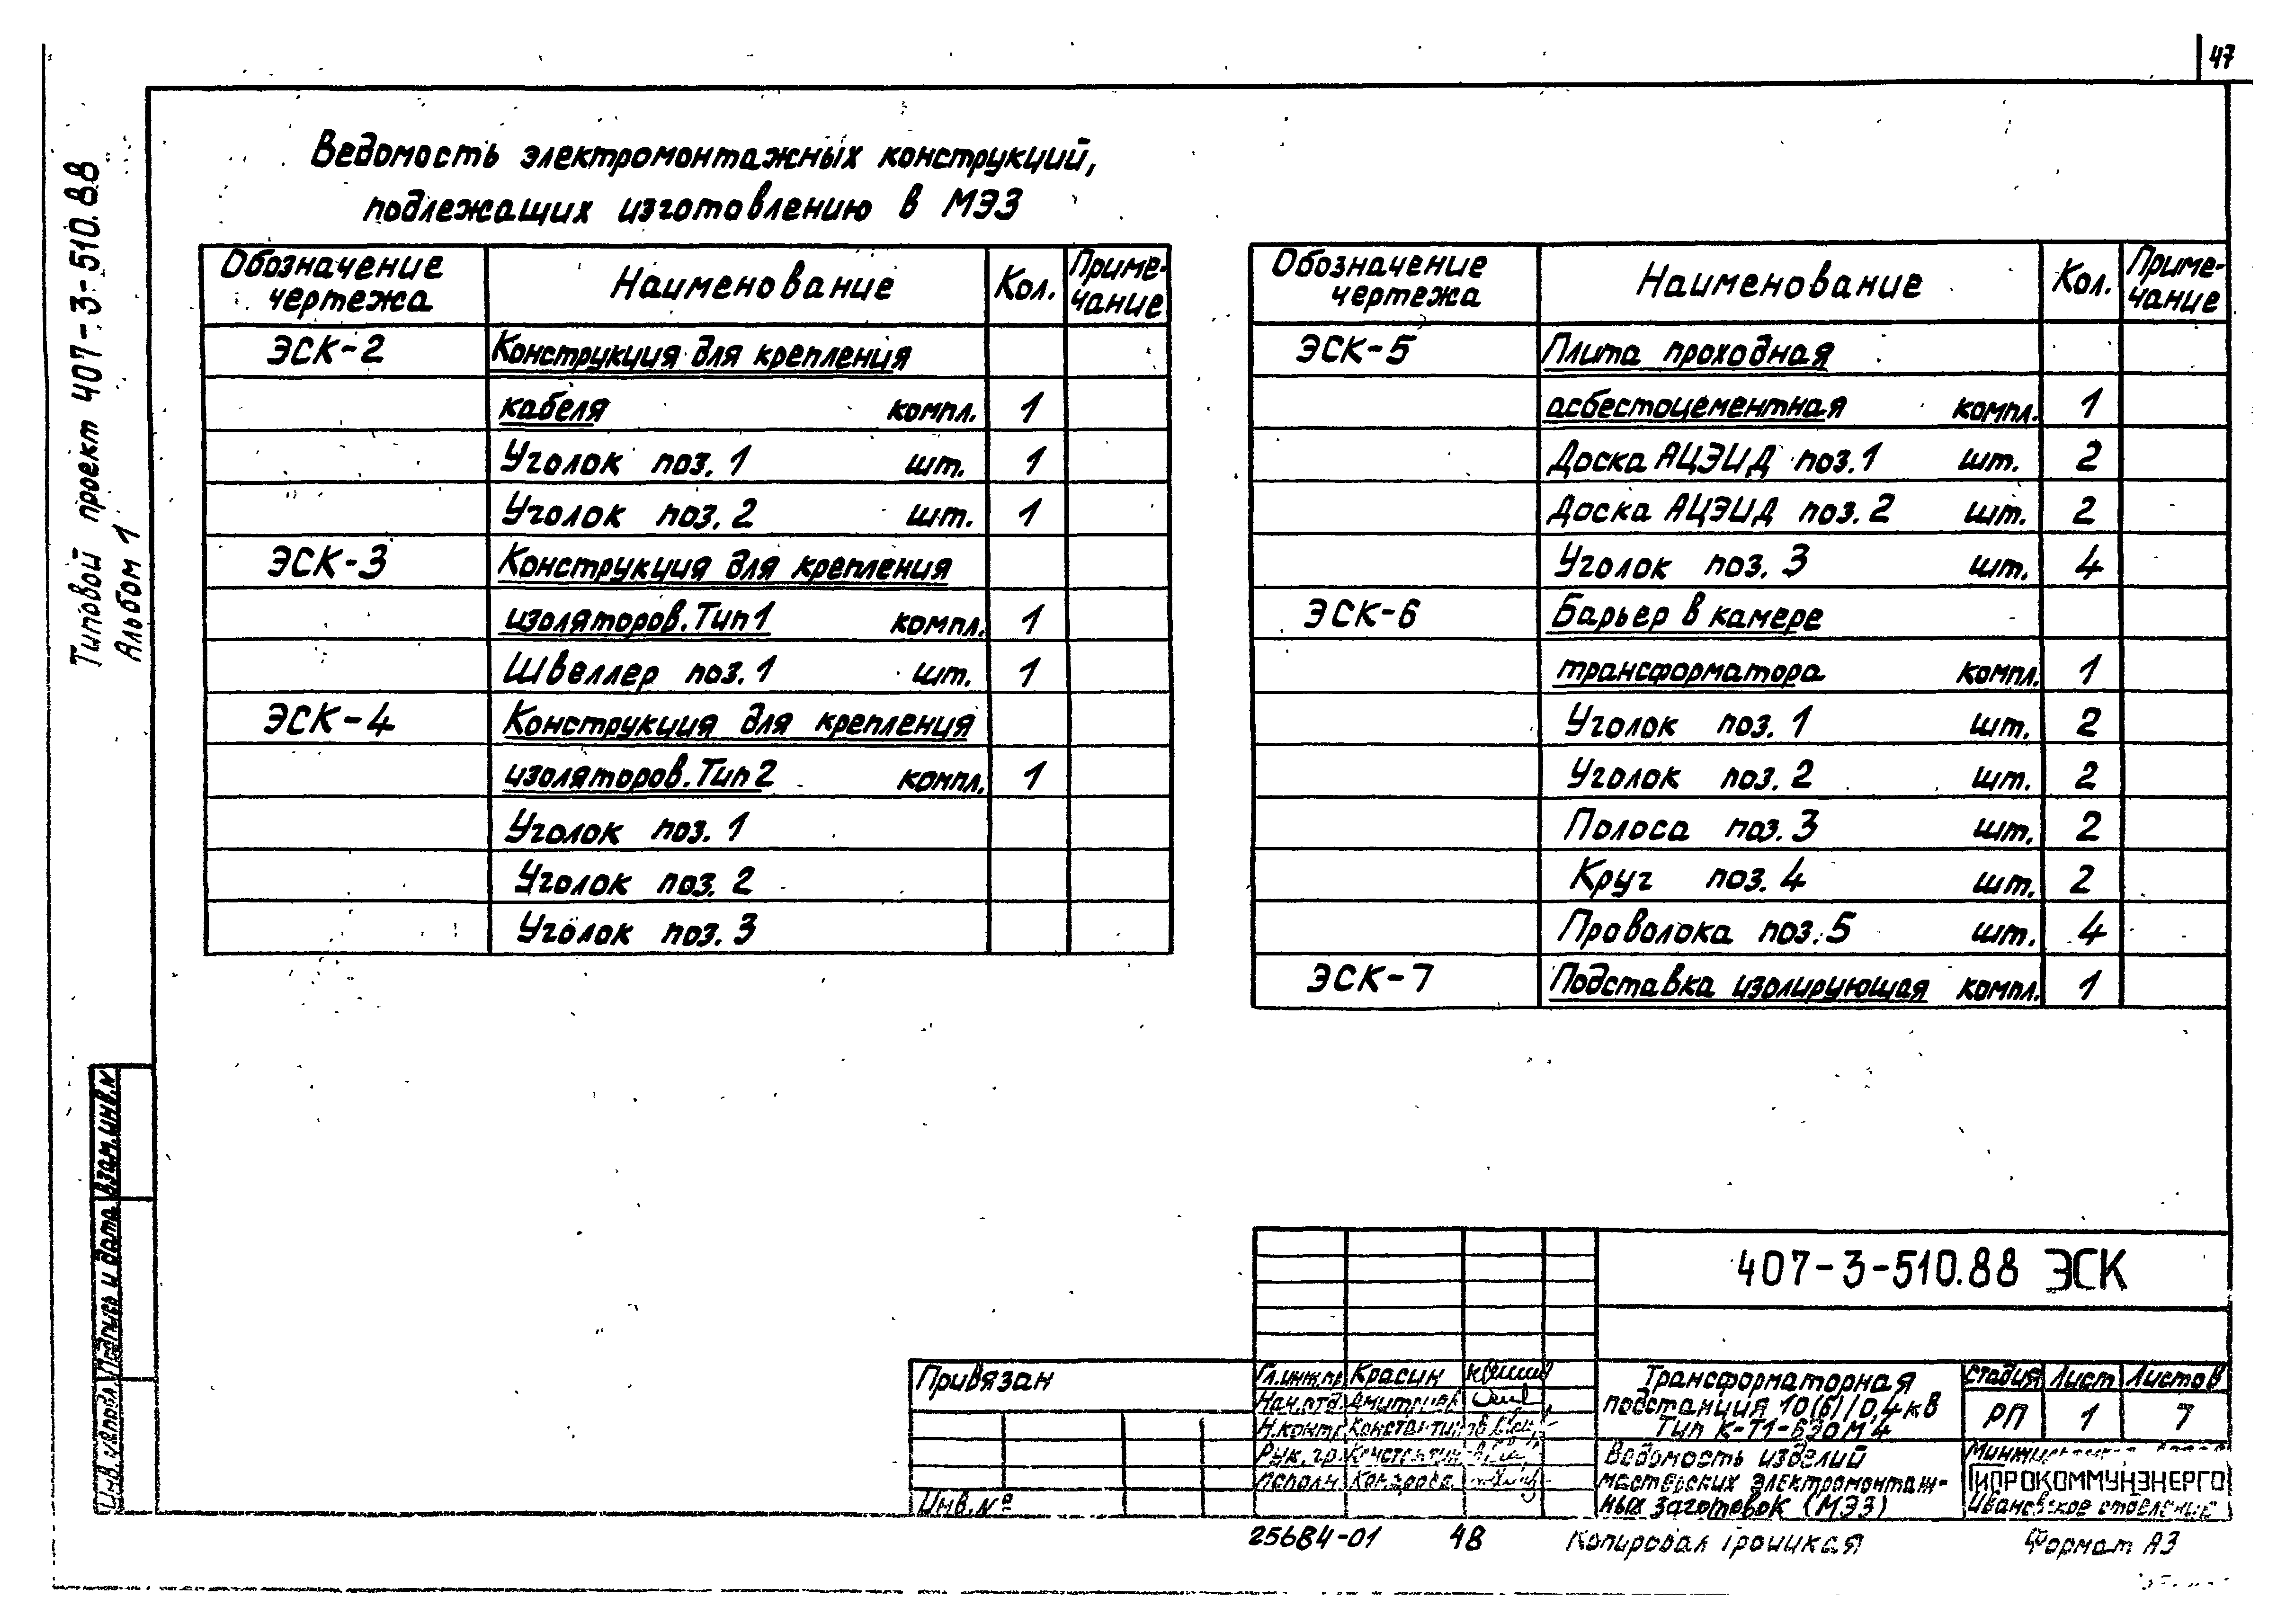 47
Типовой проект 407-3-510.88
Альбом 1
Ведомость электромонтажных конструкций,
подлежащих изготовлению в МЭЗ
Обозначение чертежа Наименование Кол. Приме-чание
ЭСК-2 Конструкция для крепления
кабеля компл. 1
Уголок поз. 1 шт. 1
Уголок поз. 2 шт. 1
ЭСК-3 Конструкция для крепления
изоляторов. Тип 1 компл. 1
Швеллер поз. 1 шт. 1
ЭСК-4 Конструкция для крепления
изоляторов. Тип 2 компл. 1
Уголок поз. 1
Уголок поз. 2
Уголок поз. 3
Обозначение чертежа Наименование Кол. Приме-чание
ЭСК-5 Плита проходная
асбестоцементная компл. 1
Доска АЦЭИД поз. 1 шт. 2
Доска АЦЭИД поз. 2 шт. 2
Уголок поз. 3 шт. 4
ЭСК-6 Барьер в камере
трансформатора компл. 1
Уголок поз. 1 шт. 2
Уголок поз. 2 шт. 2
Полоса поз. 3 шт. 2
Круг поз. 4 шт. 2
Проволока поз. 5 шт. 4
ЭСК-7 Подставка изолирующая компл. 1
Взам. инв. №
Подпись и дата
Инв. № подл.
407-3-510.88 ЭСК
Привязан
Инв. №
Гл. инж. пр. Красин
Нач. отд. Дмитриев
Н. контр. Константинов
Рук. гр.
Исполн.
Трансформаторная
подстанция 10(6)/0,4кВ
Тип К-Т1-630М4
Стадия Лист Листов
РП 1 7
Ведомость изделий
мастерских электромонтаж-
ных заготовок (МЭЗ)
ГИПРОКОММУНЭНЕРГО
Ивановское отделение
25684-01 48 Копировал Троицкая Формат А3